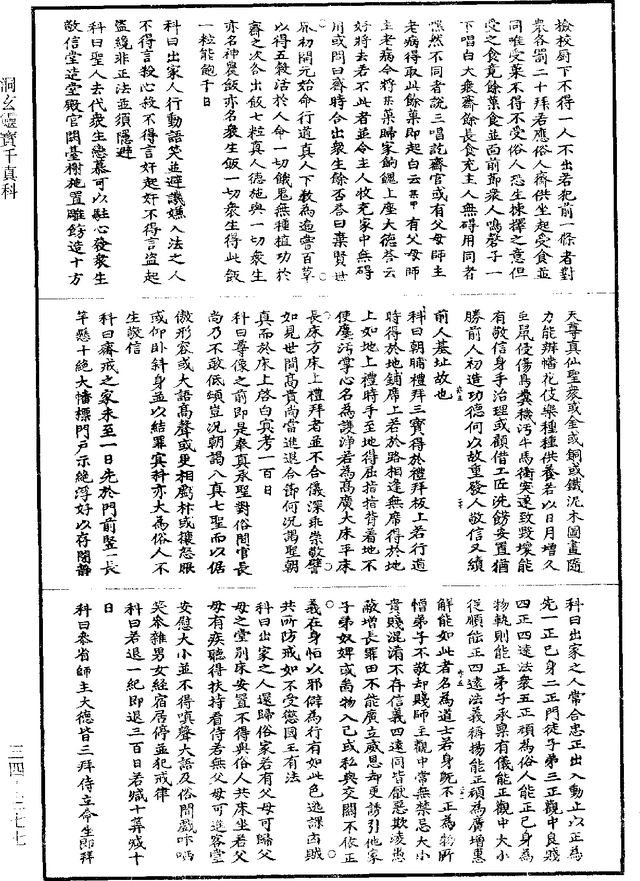 檢校厨下不得一人不出若犯前一條者對
衆各罰二十拜若應俗人齋供坐起受食並
同唯受菜不得不受俗人恐生揀擇之意但
受之食竟餘菜食並面前節衆人鳴磬子一
下唱白大衆齋餘長食充主人無礙用同者
黙然不同者說三唱訖齋官或有父母師主
老病得取此餘菓即起白云某甲有父母師
主老病今將某菓歸家餉餽上座大德荅云
好將去若不此者並令主人收充家中無碍
用或問曰齋時合出衆生餘否荅曰棄賢世
界初開元始命行道真人下教為造嘗百草
以得五穀活於人命一切餓鬼無種植功於
齋之次合出飯七粒真人德施與一切衆生
亦名神農飯亦名衆生飯一切衆生得此飯
一粒能飽千日
科曰出家人行動語笑並避譏嫌入法之人
不得言殺心殺不得言奸起奸不得言盗起
盗纔非正法並須隱避
科曰聖人去代衆生戀慕可以駐心發衆生
敬信堂造堂殿官閣臺榭施置雕飾造十方
天尊真仙聖衆或金或銅或鐵泥木圖畫隨
力能辦幡花伎樂種種供養若以日月增久
巨鼠侵傷鳥糞穢污牛馬衝突遂致毀壞能
有敬信身手治理或顧借工匠洗飾安置猶
勝前人初造功德何以故重發人敬信又績
前人基址故也
科曰朝晡禮拜三寶得於禮拜板上若行道
時得於地鋪席上若於路相逢無席得於地
上如地上禮時手至地得屈指指背着地不
便塵污掌心名為護淨若為高廣大床平床
長床方床上禮拜者並不合儀深乖崇敬譬
如見世間高貴尚當進退合節何況謁聖朝
真而於床上啓白真考一百日
科曰尊像之前即是奉真承聖對俗間官長
尚乃不敢低傾豈況朝謁入真七聖而以倨
傲形容或大語高聲或更相戲抃或攘怒眠
或仰卧斜身並以結罪冥科亦大為俗人不
生敬信
科曰齋戒之家未至一日先於門前竪一長
竿懸十絶大幡標門户示絶浮好以存閑静
科曰出家之人常合忠正出入動止以正為
先一正己身二正門徒子弟三正觀中良賤
四正四遠法衆五正頑為俗人能正己身為
物軌則能正弟子承稟有儀能正觀中大小
從順能正四遠法義稱揚能正頑為廣增惠
解能如此者名為道士若身既不正為物所
憎弟子不敬却賤師主觀中常無禁忌大小
貴賤混淆不存信義四遠同皆厭惡欺凌愚
敵增長罪田不能廣立威恩却更誘引他家
子弟奴婢或啚物入己或私典交關不依正
義在身怕以邪僻為行有如此色逃課古賊
共所防戒如不受懲國王有法
科曰出家之人還歸俗家若有父母可歸父
母之堂別床安置不得與俗人共床坐若父
母有疾聽得扶持看侍若無父母可造客堂
安慰大小並不得嗔聲大語及俗間戲咔哂
笑叅雜男女經宿居停並犯戒律
科曰若退一紀即退三百日若減十筭減十
日
科曰叅省師主大德皆三拜侍立命坐即拜
洞玄靈寶千真科
三四·三七七